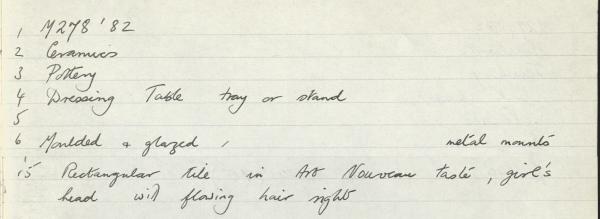 1 M278'82
2 Ceramics
3 Pottery
4 Dressing Table tray or stand
5
6 Moulded & glazed, metal mounts
15 Rectangular tile in Art Nouveau taste, girl's
head with flowing hair right